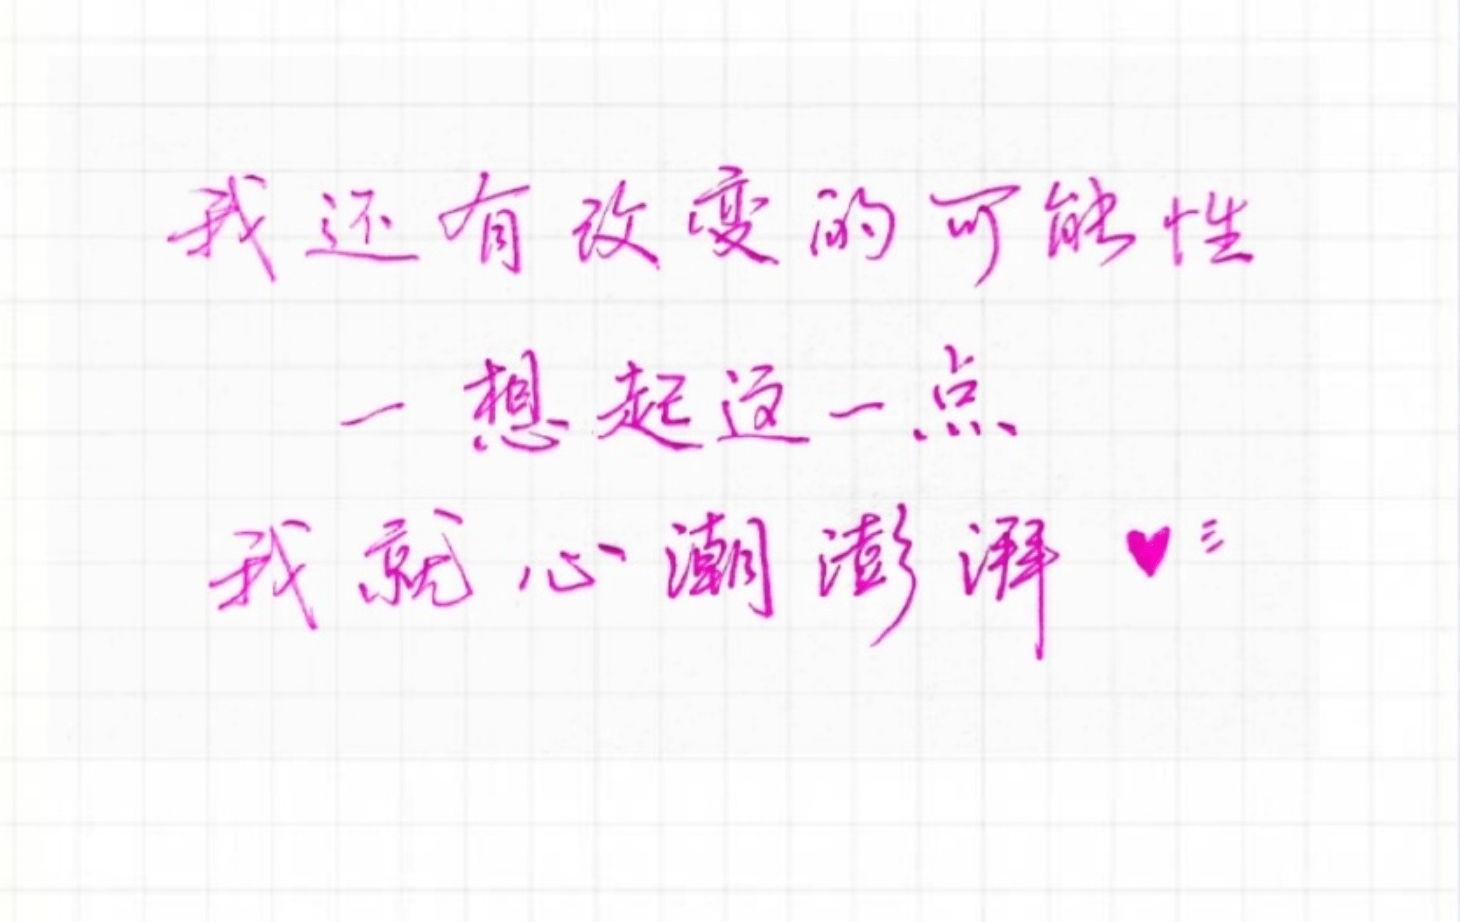 我还有改变的可能性
一想起这一点
我就心潮澎湃